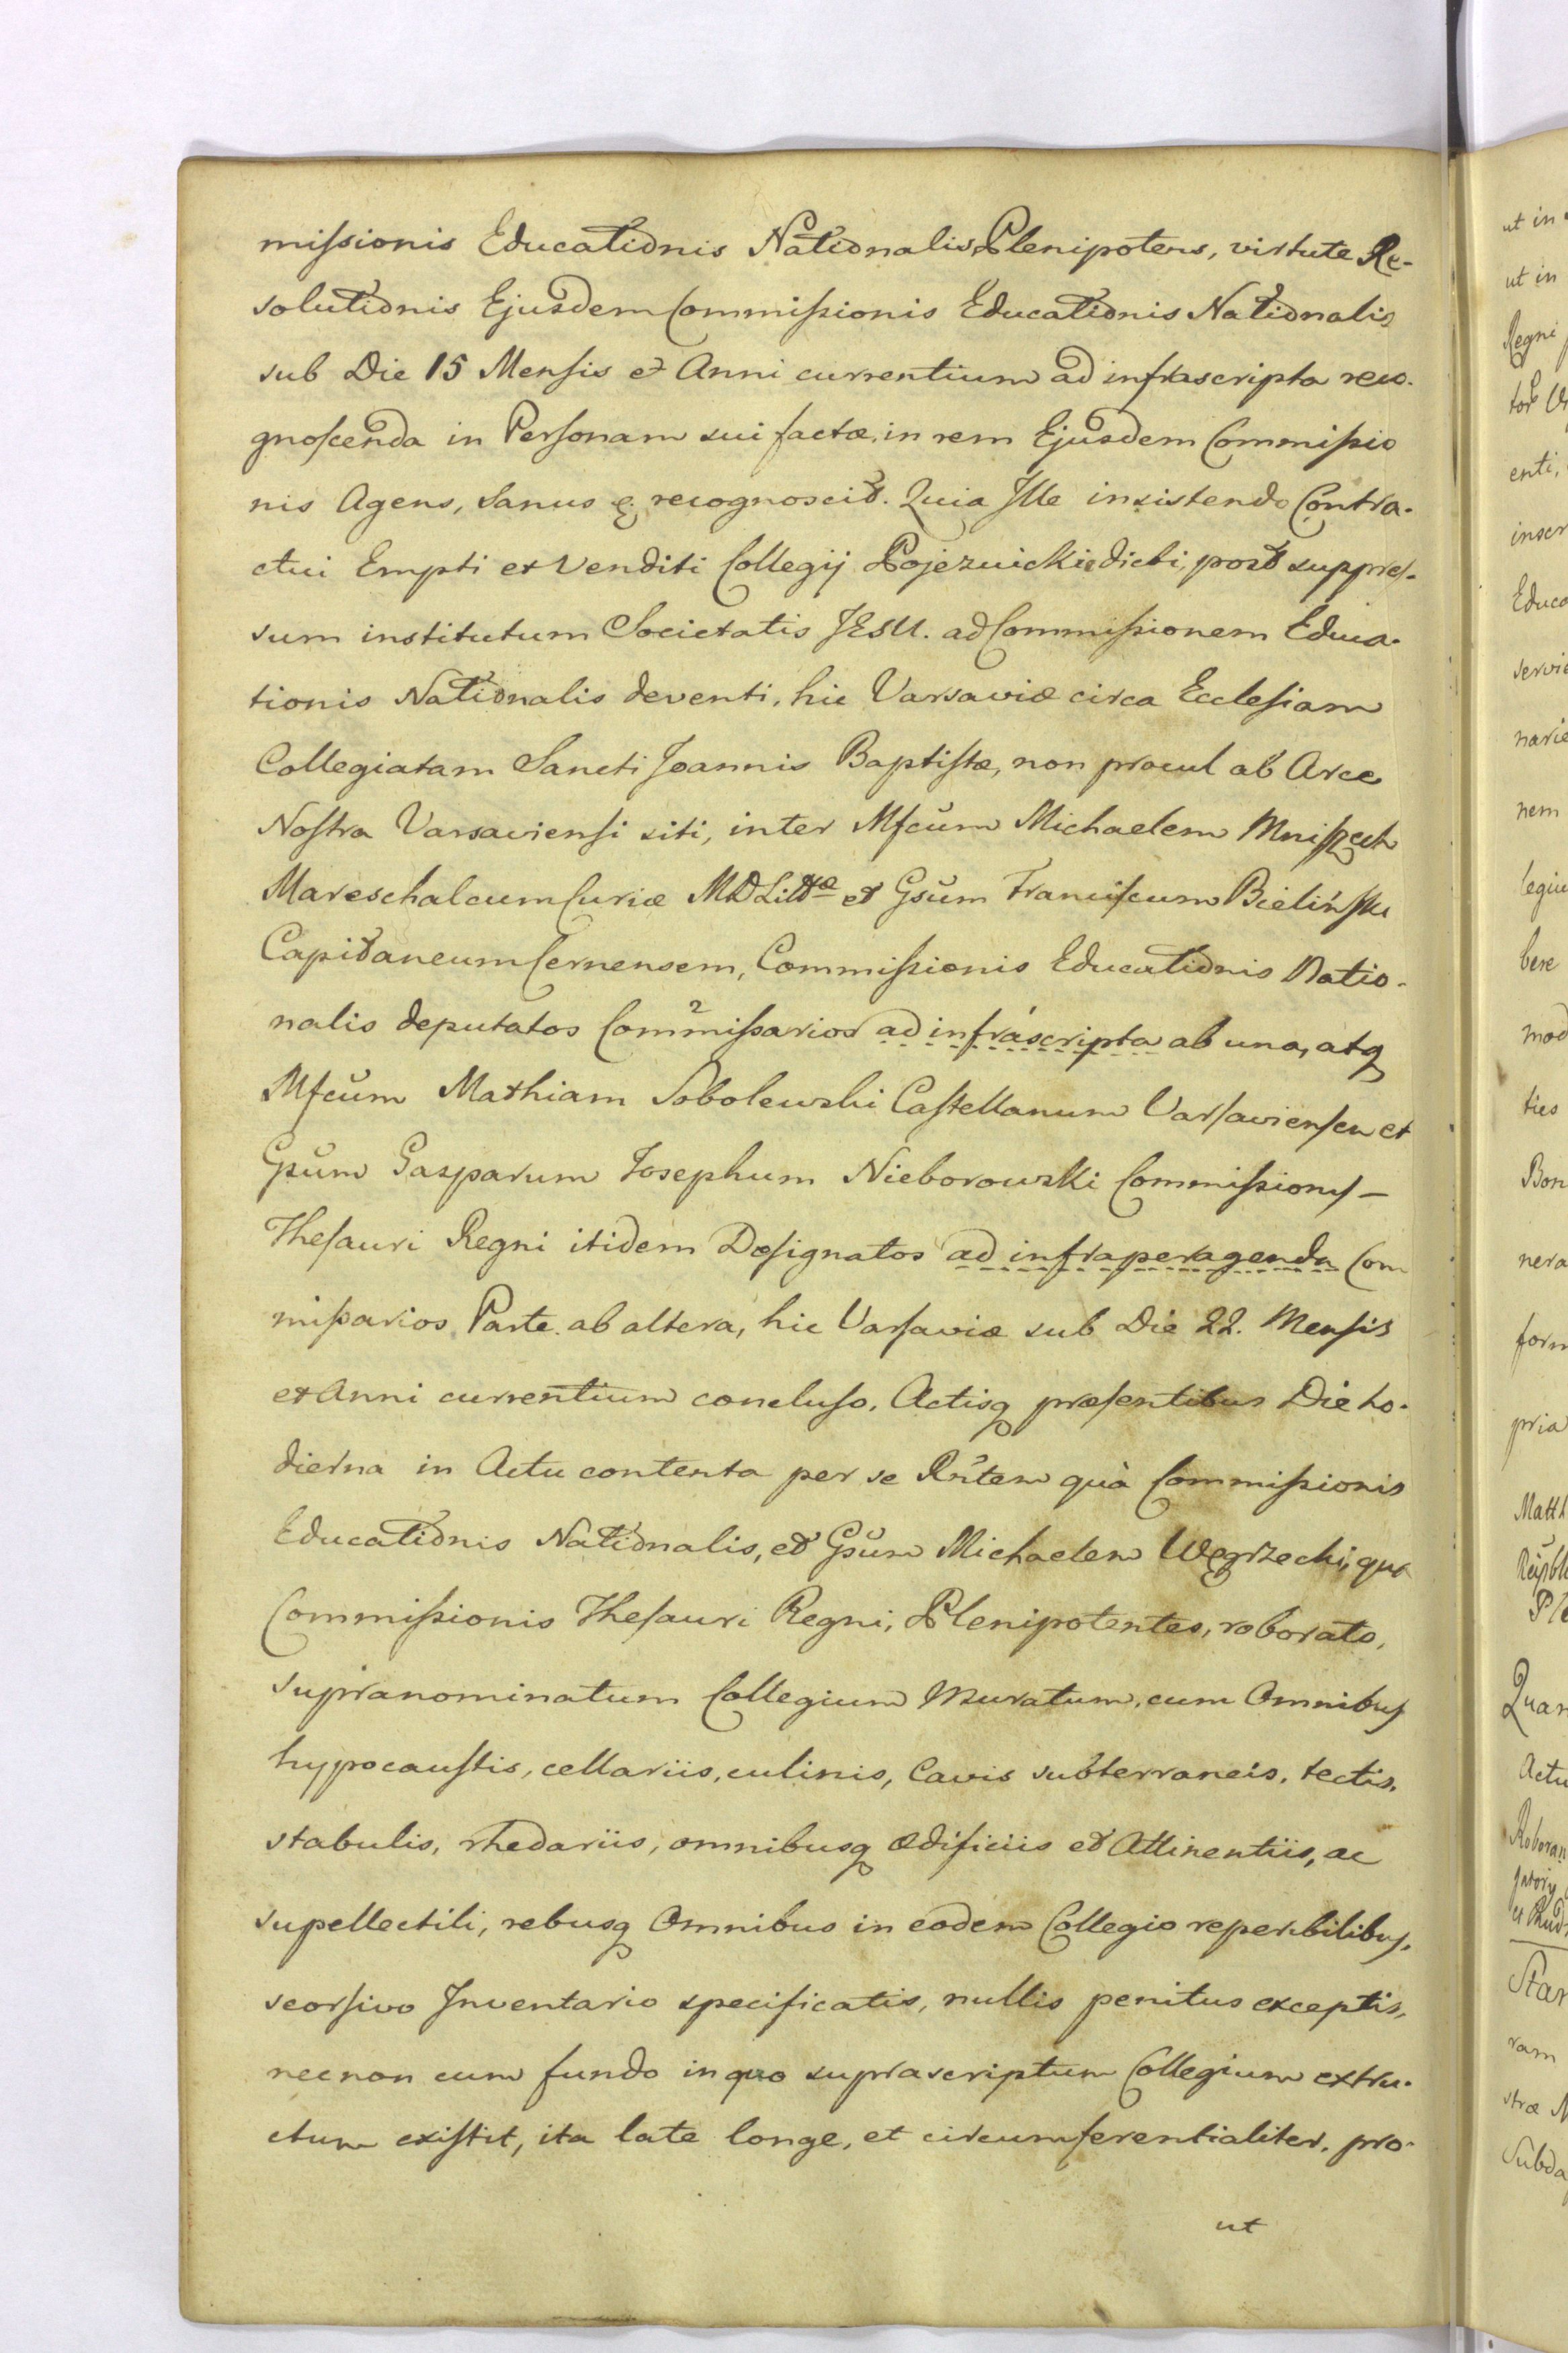 miſsionis Educationis Nationalis Plenipotens, virtute Re-
solutionis Ejusdem Commiſsionis Educationis Nationalis
sub Die 15 Menſis et Anni currentium ad infrascripta reco-
gnoſcenda in Perſonam sui factæ, in rem Ejusdem Commiſsio
nis Agens, Sanus recognoscit. Quia Ille insistendo Contra-
ctui Empti et Venditi Collegij Pojezuickie dicti, post suppreſ-
sum institutum Societatis JESU. ad Commiſsionem Educa-
tionis Nationalis deventi, hic Varsaviæ circa Eccleſiam
Collegiatam Sancti Joannis Baptiſtæ, non procul ab Arce
Noſtra Varsavienſi siti, inter Mfcum Michaelem Mniſzech
Mareschalcum Curiæ MDLittæ et Gsum Franciſcum Bielińſki
Capitaneum Cernensem, Commiſsionis Educationis Natio-
nalis deputatos Commiſsarios ad infrascripta ab una, atq
Mfcum Mathiam Sobolewski Caſtellanum Varſavienſem et
Gsum Gasparum Josephum Nieborowski Commiſsionis
Theſauri Regni itidem Deſignatos ad infraperagenda Com
miſsarios Parte ab altera, hic Varſaviæ sub Die 22. Menſis
et Anni currentium concluſo, Actisq præſentibus Die ho-
dierna in Actu contenta per se Rñtem quà Commiſsionis
Educationis Nationalis, et Gsum Michaelem Węgrzecki, qua
Commiſsionis Theſauri Regni, Plenipotentes, roborato,
supranominatum Collegium Muratum, cum Omnibuſ
hypocauſtis, cellariis, culinis, Cavis subterraneis, tectis,
stabulis, rhedariis, omnibusq ædificiis et Attinentiis, ac
supellectili, rebusq Omnibus in eodem Collegio reperibilibuſ,
seorſivo Inventario specificatis, nullis penitus exceptis,
necnon cum fundo in quo suprascriptum Collegium extru-
ctum exiſtit, ita late longe, et circumferentialiter, pro-
ut